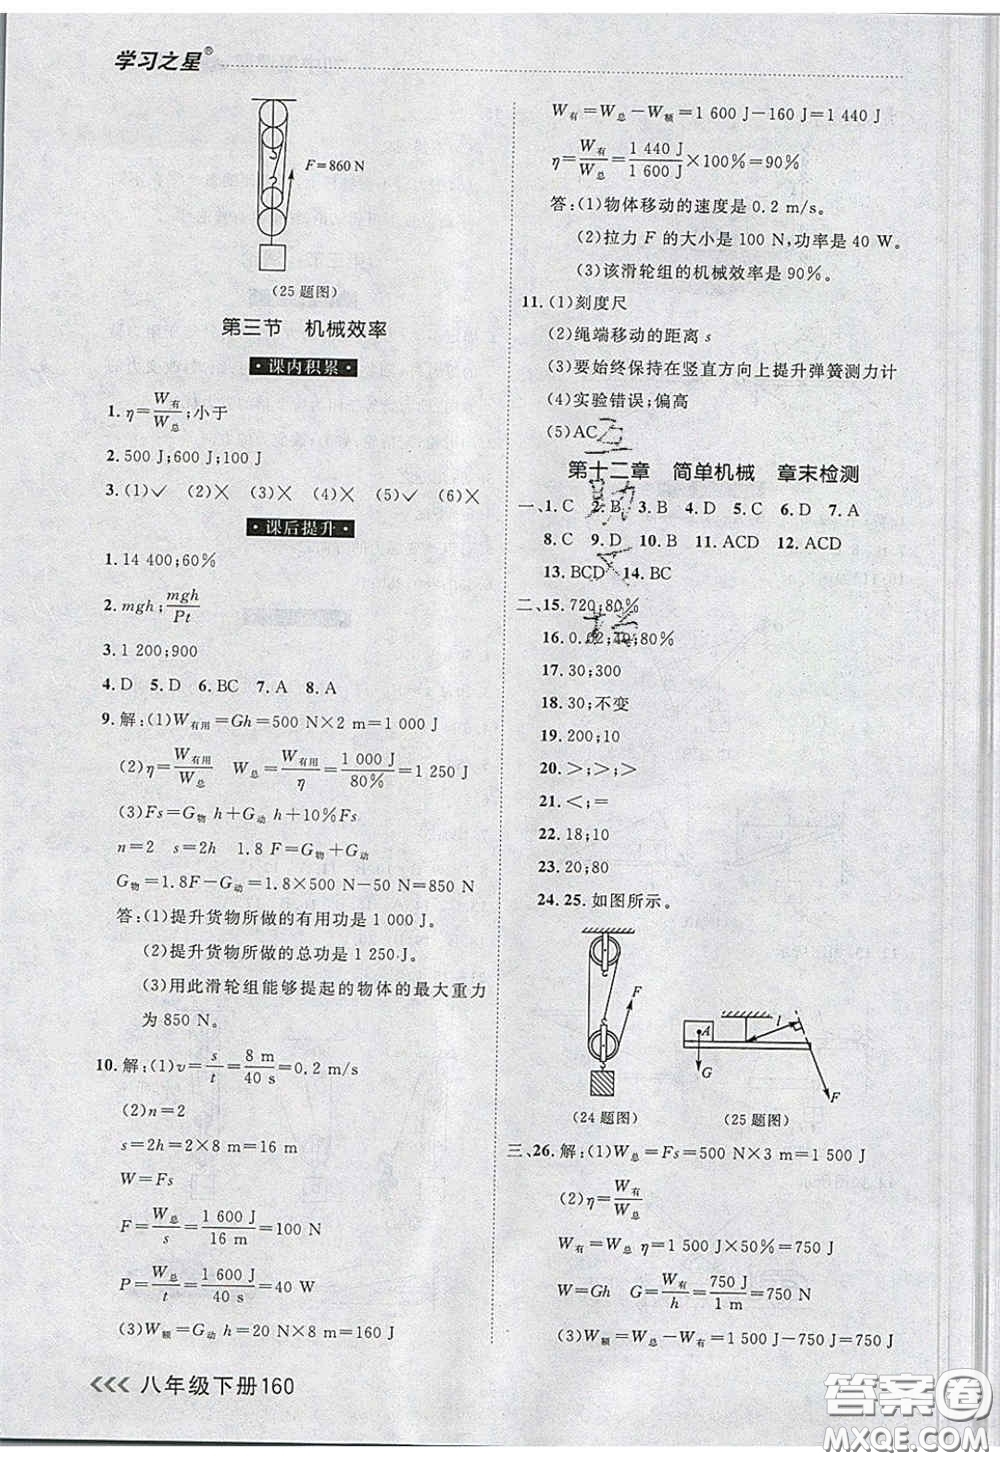 学习之星®
F=860 N
(25题图)
第三节 机械效率
·课内积累·
1. η=W有/W总;小于
2. 500 J;600 J;100 J
3. (1)✓ (2)× (3)× (4)× (5)✓ (6)×
·课后提升·
1. 14 400;60%
2. mgh;mgh/Pt
3. 1 200;900
4. D 5. D 6. BC 7. A 8. A
9. 解:(1)W有用=Gh=500 N×2 m=1 000 J
(2)η=W有用/W总 W总=W有用/η=1 000 J/80%=1 250 J
(3)Fs=G物 h+G动 h+10%Fs
n=2 s=2h 1.8 F=G物+G动
G物=1.8F-G动=1.8×500 N-50 N=850 N
答:(1)提升货物所做的有用功是 1 000 J。
(2)提升货物所做的总功是 1 250 J。
(3)用此滑轮组能够提起的物体的最大重力
为 850 N。
10. 解:(1)v=s/t=8 m/40 s=0.2 m/s
(2)n=2
s=2h=2×8 m=16 m
W=Fs
F=W总/s=1 600 J/16 m=100 N
P=W总/t=1 600 J/40 s=40 W
(3)W额=G动 h=20 N×8 m=160 J
W有=W总-W额=1 600 J-160 J=1 440 J
η=W有/W总=1 440 J/1 600 J×100%=90%
答:(1)物体移动的速度是 0.2 m/s。
(2)拉力 F 的大小是 100 N,功率是 40 W。
(3)该滑轮组的机械效率是 90%。
11. (1)刻度尺
(2)绳端移动的距离 s
(3)要始终保持在竖直方向上提升弹簧测力计
(4)实验错误;偏高
(5)AC
第十二章 简单机械 章末检测
一、1. C 2. B 3. B 4. D 5. C 6. D 7. A
8. C 9. D 10. B 11. ACD 12. ACD
13. BCD 14. BC
二、15. 720;80%
16. 0.02;40;80%
17. 30;300
18. 30;不变
19. 200;10
20. >;>;>
21. <;=
22. 18;10
23. 20;80
24. 25. 如图所示。
F
A
l
G
F
(24题图)
(25题图)
三、26. 解:(1)W总=Fs=500 N×3 m=1 500 J
(2)η=W有/W总
W有=W总 η=1 500 J×50%=750 J
W=Gh G=W有/h=750 J/1 m=750 N
(3)W额=W总-W有=1 500 J-750 J=750 J
八年级下册160
答案圈
MXQE.COM